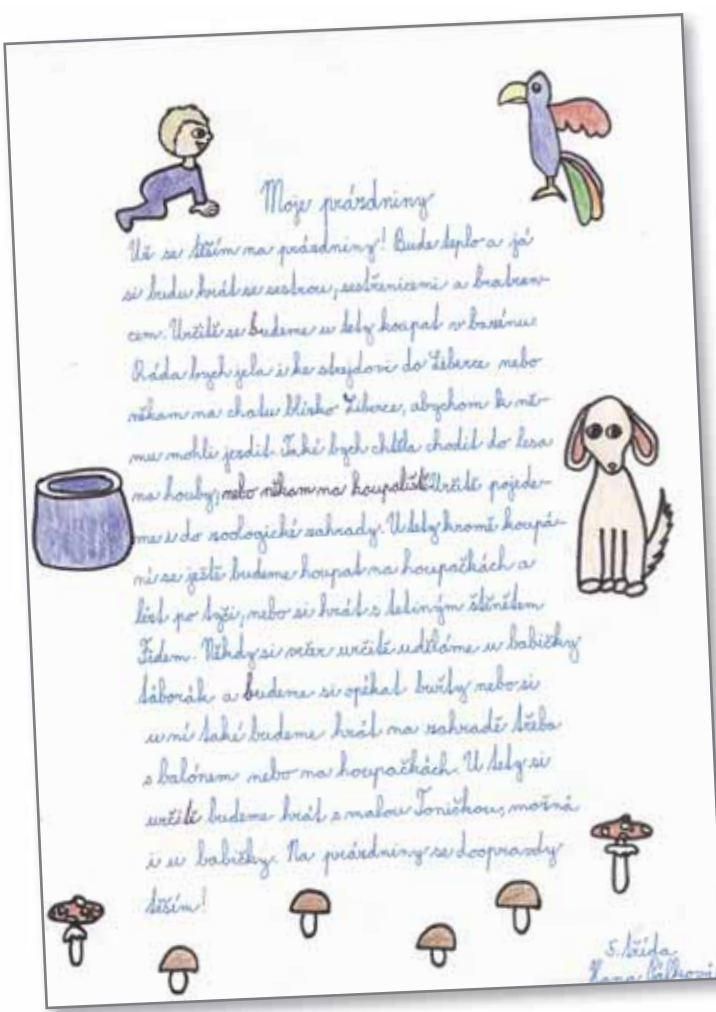 Moje prázdniny
Už se těším na prázdniny! Bude teplo a já
si budu hrát se sestrou, sestřenicemi a bratran-
cem. Určitě se budeme u tety koupat v bazénu.
Ráda bych jela i ke strejdovi do Liberce nebo
někam na chatu blízko Liberce, abychom k ně-
mu mohli jezdit. Také bych chtěla chodit do lesa
na houby, nebo někam na koupaliště. Určitě pojede-
me i do zoologické zahrady. U tety kromě koupá-
ní se ještě budeme houpat na houpačkách a
lézt po tyči, nebo si hrát s tetiným štěnětem
Fidem. Někdy si večer určitě uděláme u babičky
táborák a budeme si opékat buřty nebo si
u ní také budeme hrát na zahradě třeba
s balónem nebo na houpačkách. U tety si
určitě budeme hrát s malou Toničkou, možná
i u babičky. Na prázdniny se doopravdy
těším!
5. třída
Hana